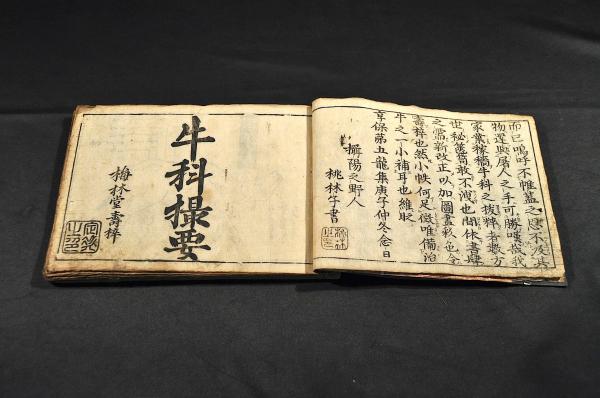 而已嗚呼不惟蓋之恩不及其
物遂與屠人之手可勝嘆哉我
家業稼穡牛科之抜粹者數方
世秘篋笥敢不洩也間休書肆
之需新改正以加圖畫彩色令
壽梓也然小帙何足徴唯備治
牛之一小補耳也維時
享保第五龍集庚子仲冬念日
攝陽之野人
桃林子書
牛科撮要
梅林堂壽梓